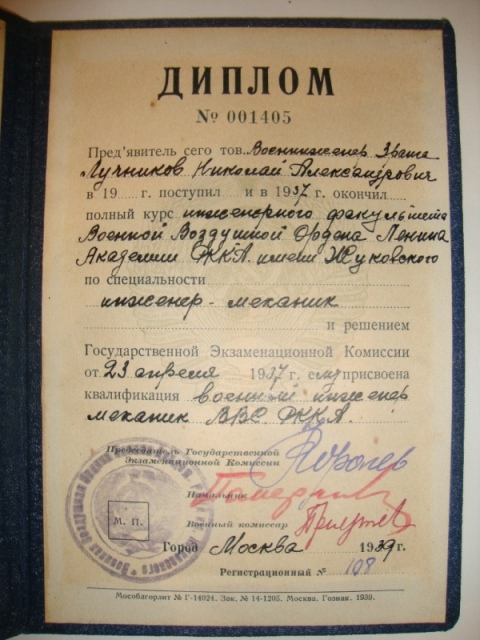 ДИПЛОМ
№ 001405
Пред'явитель сего тов. Военинженер 3 ранга
Лучников Николай Александрович
в 19 г. поступил и в 1937 г. окончил
полный курс инженерного факультета
Военной Воздушной Ордена Ленина
Академии РККА имени Жуковского
по специальности
инженер-механик
и решением
Государственной Экзаменационной Комиссии
от 23 апреля 1937 г. ему присвоена
квалификация военный инженер
механик ВВС РККА.
Председатель Государственной
Экзаменационной Комиссии
Начальник
М. П.
Военный комиссар
Город Москва 1939 г.
Регистрационный № 108
Мособлгорлит № Г-14024. Зак. № 14-1205. Москва. Гознак. 1939.